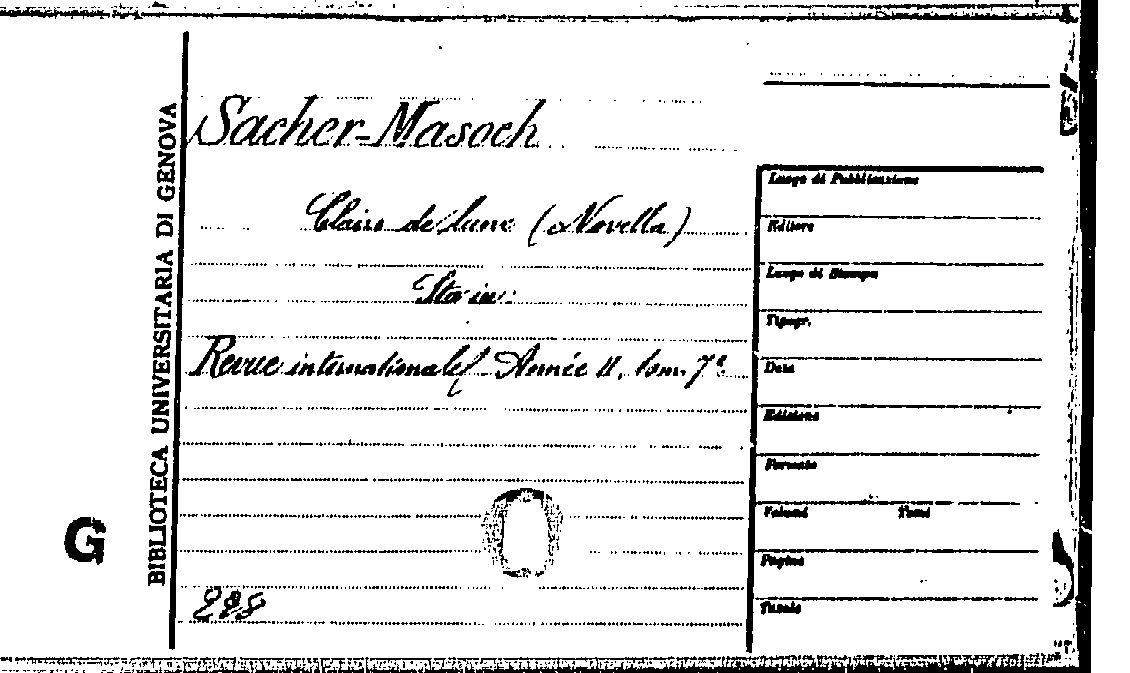 BIBLIOTECA UNIVERSITARIA DI GENOVA
G
Sacher-Masoch
Clair de lune (Novella)
Sta in:
Revue internationale - Année II, tom. 7º
228
Luogo di Pubblicazione
Editore
Luogo di Stampa
Tipogr.
Data
Edizione
Formato
Volumi Tomi
Pagine
Tavole